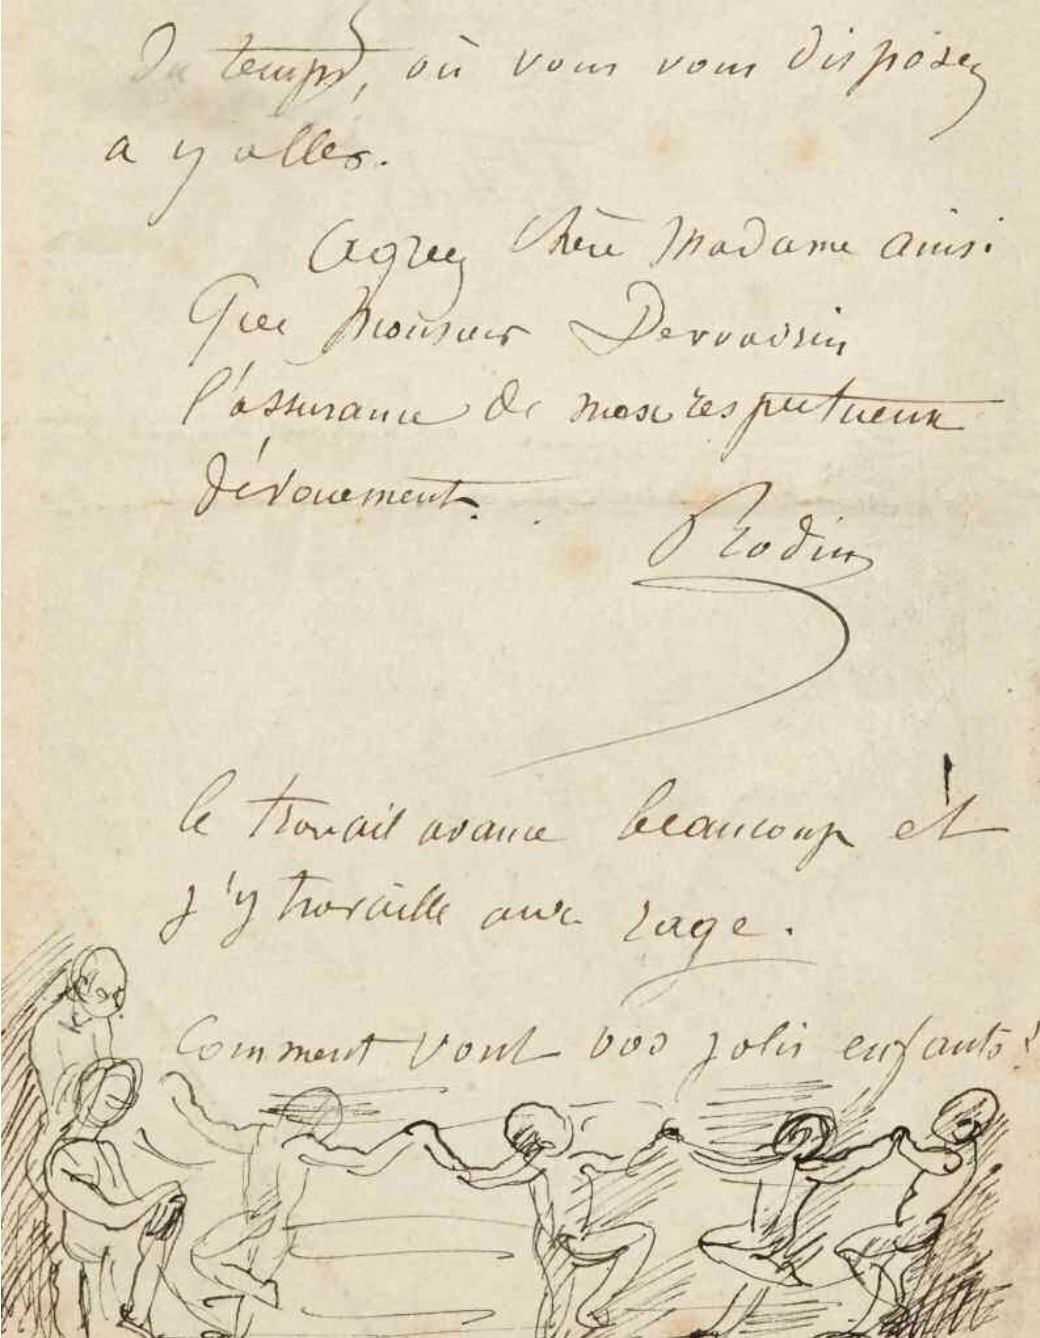 Du temps, où vous vous disposez
a y aller.
Agreez Chère Madame ainsi
Que Monsieur Dervaisin
l'assurance de mon respectueux
dévouement.
Rodin
le travail avance beaucoup et
j'y travaille avec rage.
Comment vont vos jolis enfants?